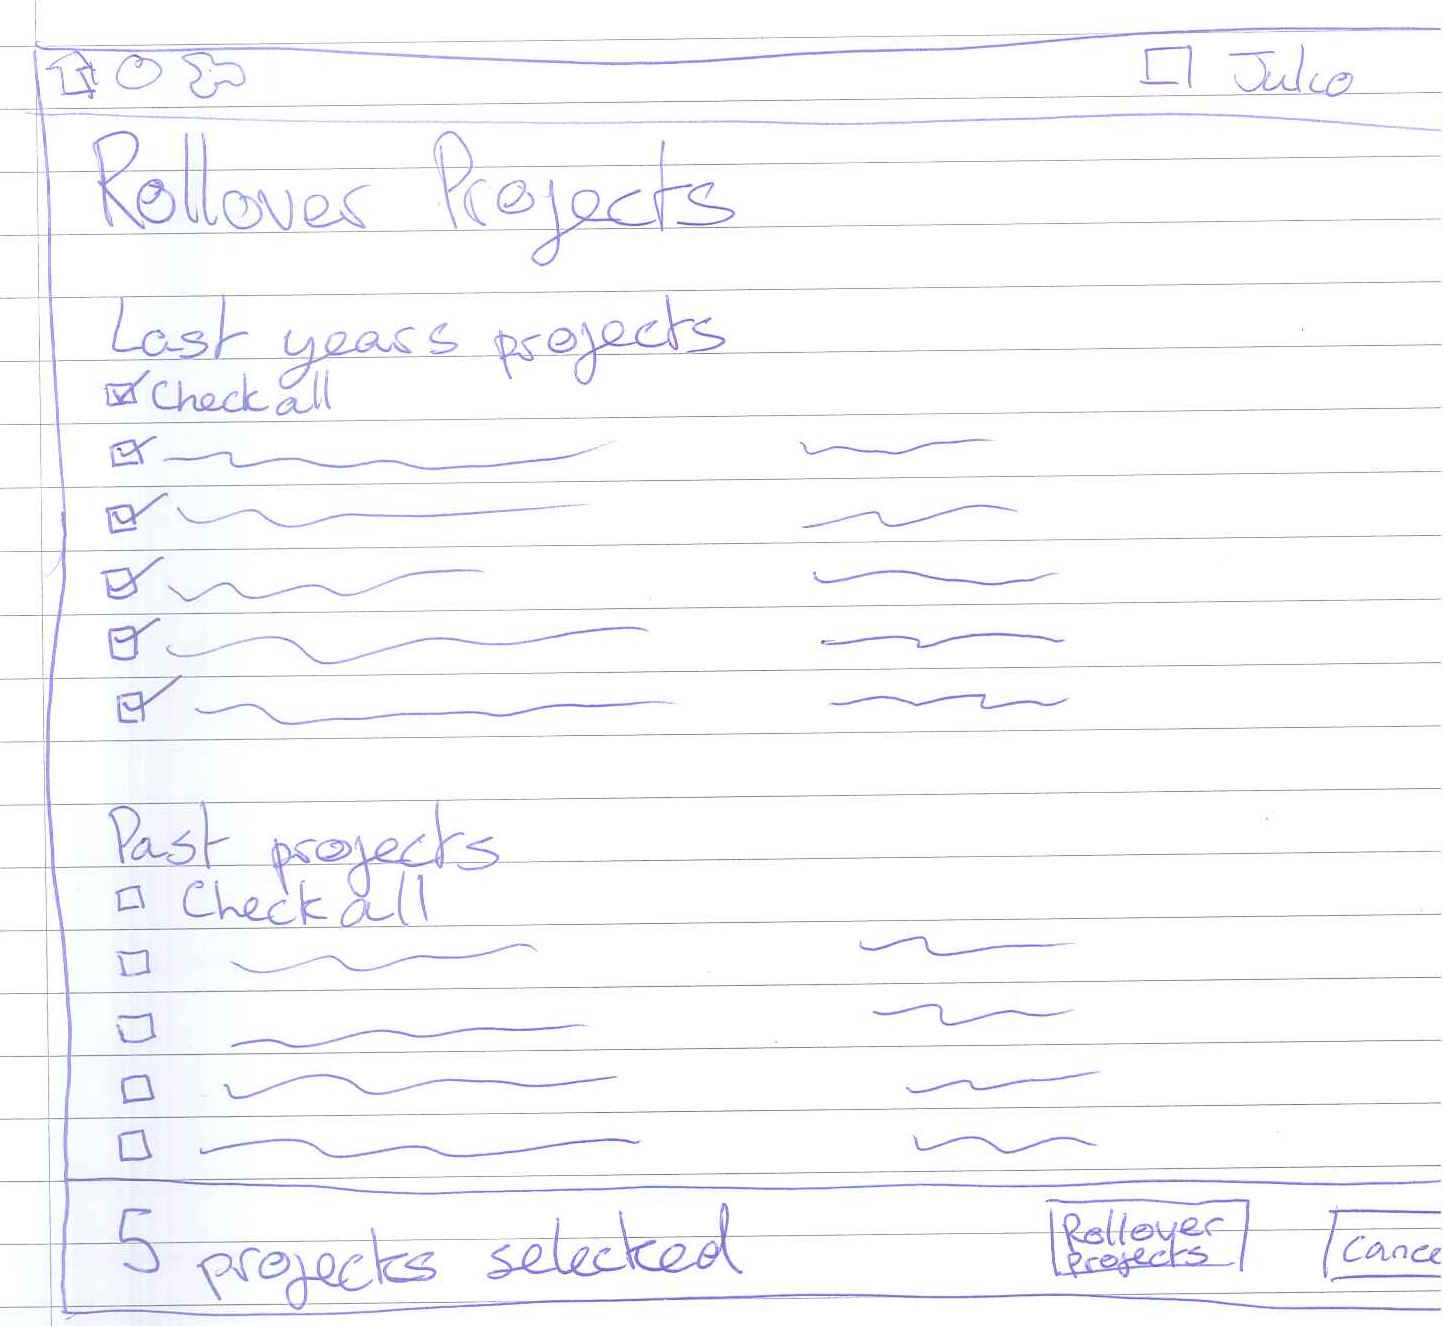 Julco
Rollover Projects
Last years projects
Check all
Past projects
Check all
5 projects selected
Rollover
projects
Cance